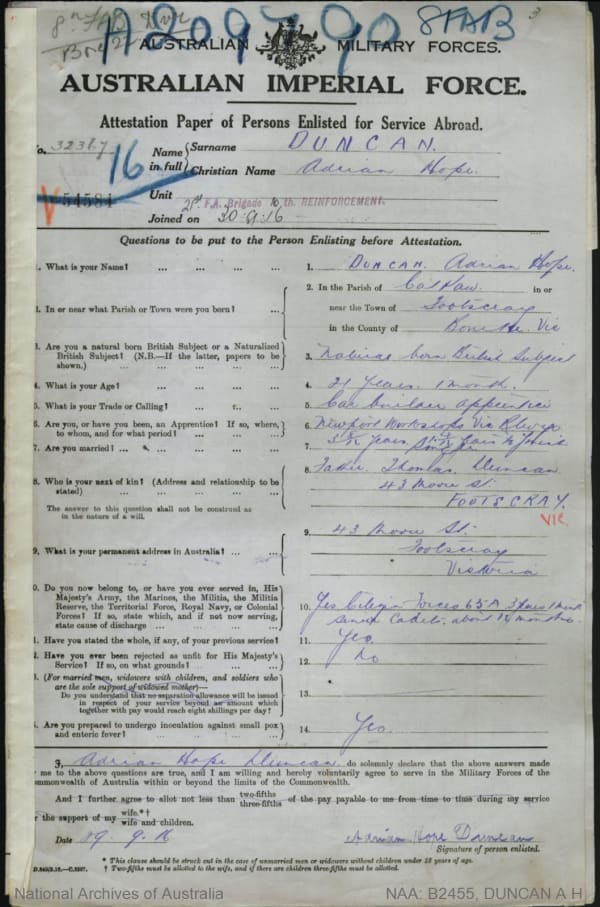 A20979 90 8 FAB
3
AUSTRALIAN MILITARY FORCES.
AUSTRALIAN IMPERIAL FORCE.
Attestation Paper of Persons Enlisted for Service Abroad.
o. 32367 Name in full Surname DUNCAN.
16 Christian Name Adrian Hope.
V 54584 Unit F.A. Brigade th. REINFORCEMENT.
Joined on 30.9.16
Questions to be put to the Person Enlisting before Attestation.
1. What is your Name? ... ... ... ... 1. DUNCAN. Adrian Hope.
2. In or near what Parish or Town were you born? ... 2. In the Parish of in or
near the Town of Footscray
in the County of Vic
3. Are you a natural born British Subject or a Naturalized
British Subject? (N.B.—If the latter, papers to be
shown.) ... ... ... ... 3. Natural born British Subject
4. What is your Age? ... ... ... ... 4. 21 Years. 1 month.
5. What is your Trade or Calling? ... ... ... 5. Car builder apprentice
6. Are you, or have you been, an Apprentice? If so, where,
to whom, and for what period? ... ... ... 6. Newport Workshops Vic Rlways
7. Are you married? ... ... ... ... 7. Single
8. Who is your next of kin? (Address and relationship to be
stated) ... ... ... ... 8. Father. Thomas Duncan
43 Moore St.
The answer to this question shall not be construed as
in the nature of a will. FOOTSCRAY.
VIC.
9. What is your permanent address in Australia? ... ... 9. 43 Moore St.
Footscray
Victoria
0. Do you now belong to, or have you ever served in, His
Majesty's Army, the Marines, the Militia, the Militia
Reserve, the Territorial Force, Royal Navy, or Colonial
Forces? If so, state which, and if not now serving,
state cause of discharge ... ... ... 10. Yes Citizen Forces 65A
Senior Cadets. about 14 months.
1. Have you stated the whole, if any, of your previous service? 11. Yes.
2. Have you ever been rejected as unfit for His Majesty's
Service? If so, on what grounds? ... ... 12. No
3. (For married men, widowers with children, and soldiers who
are the sole support of widowed mother)—
Do you understand that no separation allowance will be issued
in respect of your service beyond an amount which
together with pay would reach eight shillings per day? 13.
4. Are you prepared to undergo inoculation against small pox
and enteric fever? ... ... ... 14. Yes.
I, Adrian Hope Duncan do solemnly declare that the above answers made
me to the above questions are true, and I am willing and hereby voluntarily agree to serve in the Military Forces of the
mmonwealth of Australia within or beyond the limits of the Commonwealth.
And I further agree to allot not less than two-fifths three-fifths of the pay payable to me from time to time during my service
r the support of my wife.*† wife and children.
Date 19.9.16 Adrian Hope Duncan
Signature of person enlisted.
* This clause should be struck out in the case of unmarried men or widowers without children under 18 years of age.
† Two-fifths must be allotted to the wife, and if there are children three-fifths must be allotted.
National Archives of Australia NAA: B2455, DUNCAN A H